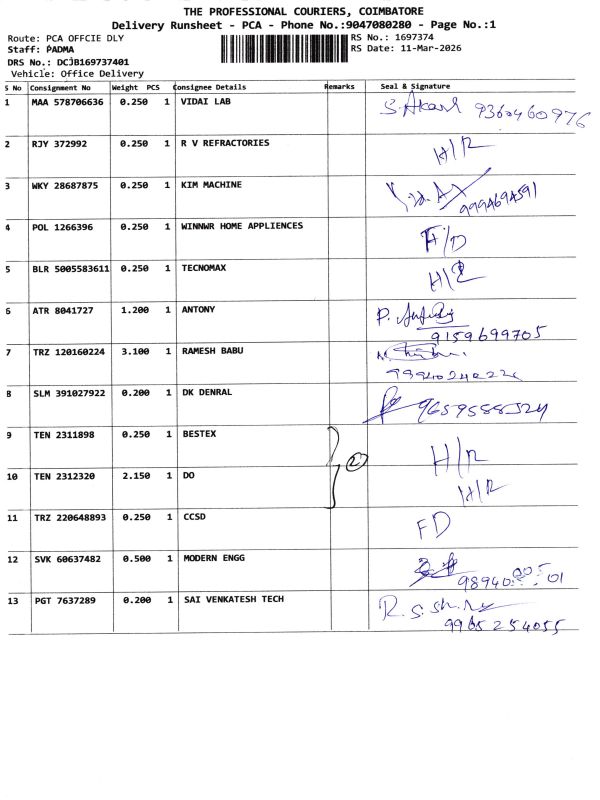 THE PROFESSIONAL COURIERS, COIMBATORE
Delivery Runsheet - PCA - Phone No.:9047080280 - Page No.:1
Route: PCA OFFCIE DLY
RS No.: 1697374
Staff: PADMA
RS Date: 11-Mar-2026
DRS No.: DCJB169737401
Vehicle: Office Delivery
S No Consignment No Weight PCS Consignee Details Remarks Seal & Signature
1 MAA 578706636 0.250 1 VIDAI LAB S. Akash 9360460976
2 RJY 372992 0.250 1 R V REFRACTORIES H/R
3 WKY 28687875 0.250 1 KIM MACHINE 9994694591
4 POL 1266396 0.250 1 WINNWR HOME APPLIENCES F/D
5 BLR 5005583611 0.250 1 TECNOMAX H/R
6 ATR 8041727 1.200 1 ANTONY P. 9159699705
7 TRZ 120160224 3.100 1 RAMESH BABU
8 SLM 391027922 0.200 1 DK DENRAL 9659588324
9 TEN 2311898 0.250 1 BESTEX 2 H/R
10 TEN 2312320 2.150 1 DO H/R
11 TRZ 220648893 0.250 1 CCSD FD
12 SVK 60637482 0.500 1 MODERN ENGG
13 PGT 7637289 0.200 1 SAI VENKATESH TECH 9965254055